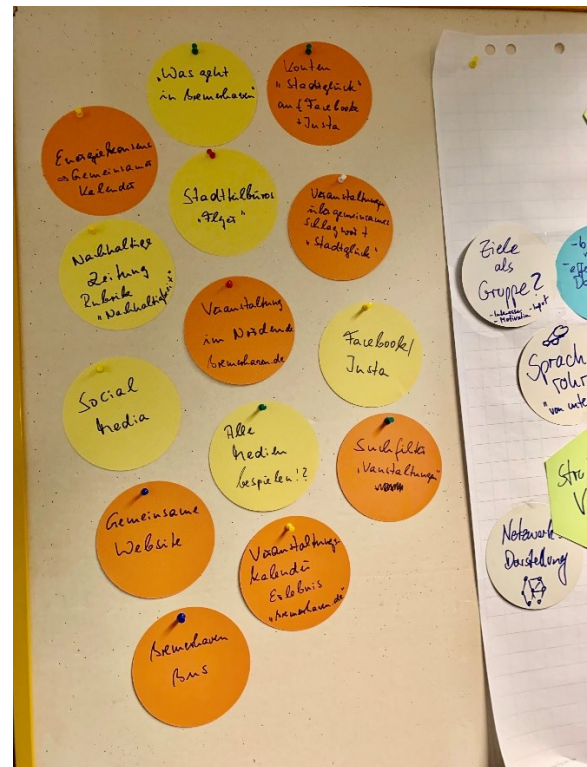 „Was geht
in Bremerhaven"
Konten
„Stadtglück"
auf Facebook
+ Insta
Energiekonsens
=> Gemeinsamer
Kalender
Stadtteilbüros
"Flyer"
Veranstaltungen
über gemeinsames
Schlagwort
"Stadtglück"
Nachhaltige
Zeitung
Rubrik
"Nachhaltigkeit"
Veranstaltung
im Norden.de
Bremerhaven.de
Facebook/
Insta
Social
Media
Alle
Medien
bespielen!?
Suchfilter
„Veranstaltungen"
Gemeinsame
Website
Veranstaltungs
kalender
Erlebnis
„Bremerhaven.de"
Bremerhaven
Bus
Ziele
als
Gruppe?
- Interessen
- Motivation
- Input
Sprach
rohr
"von unte
Stru
V
Netzwerk-
Darstellung